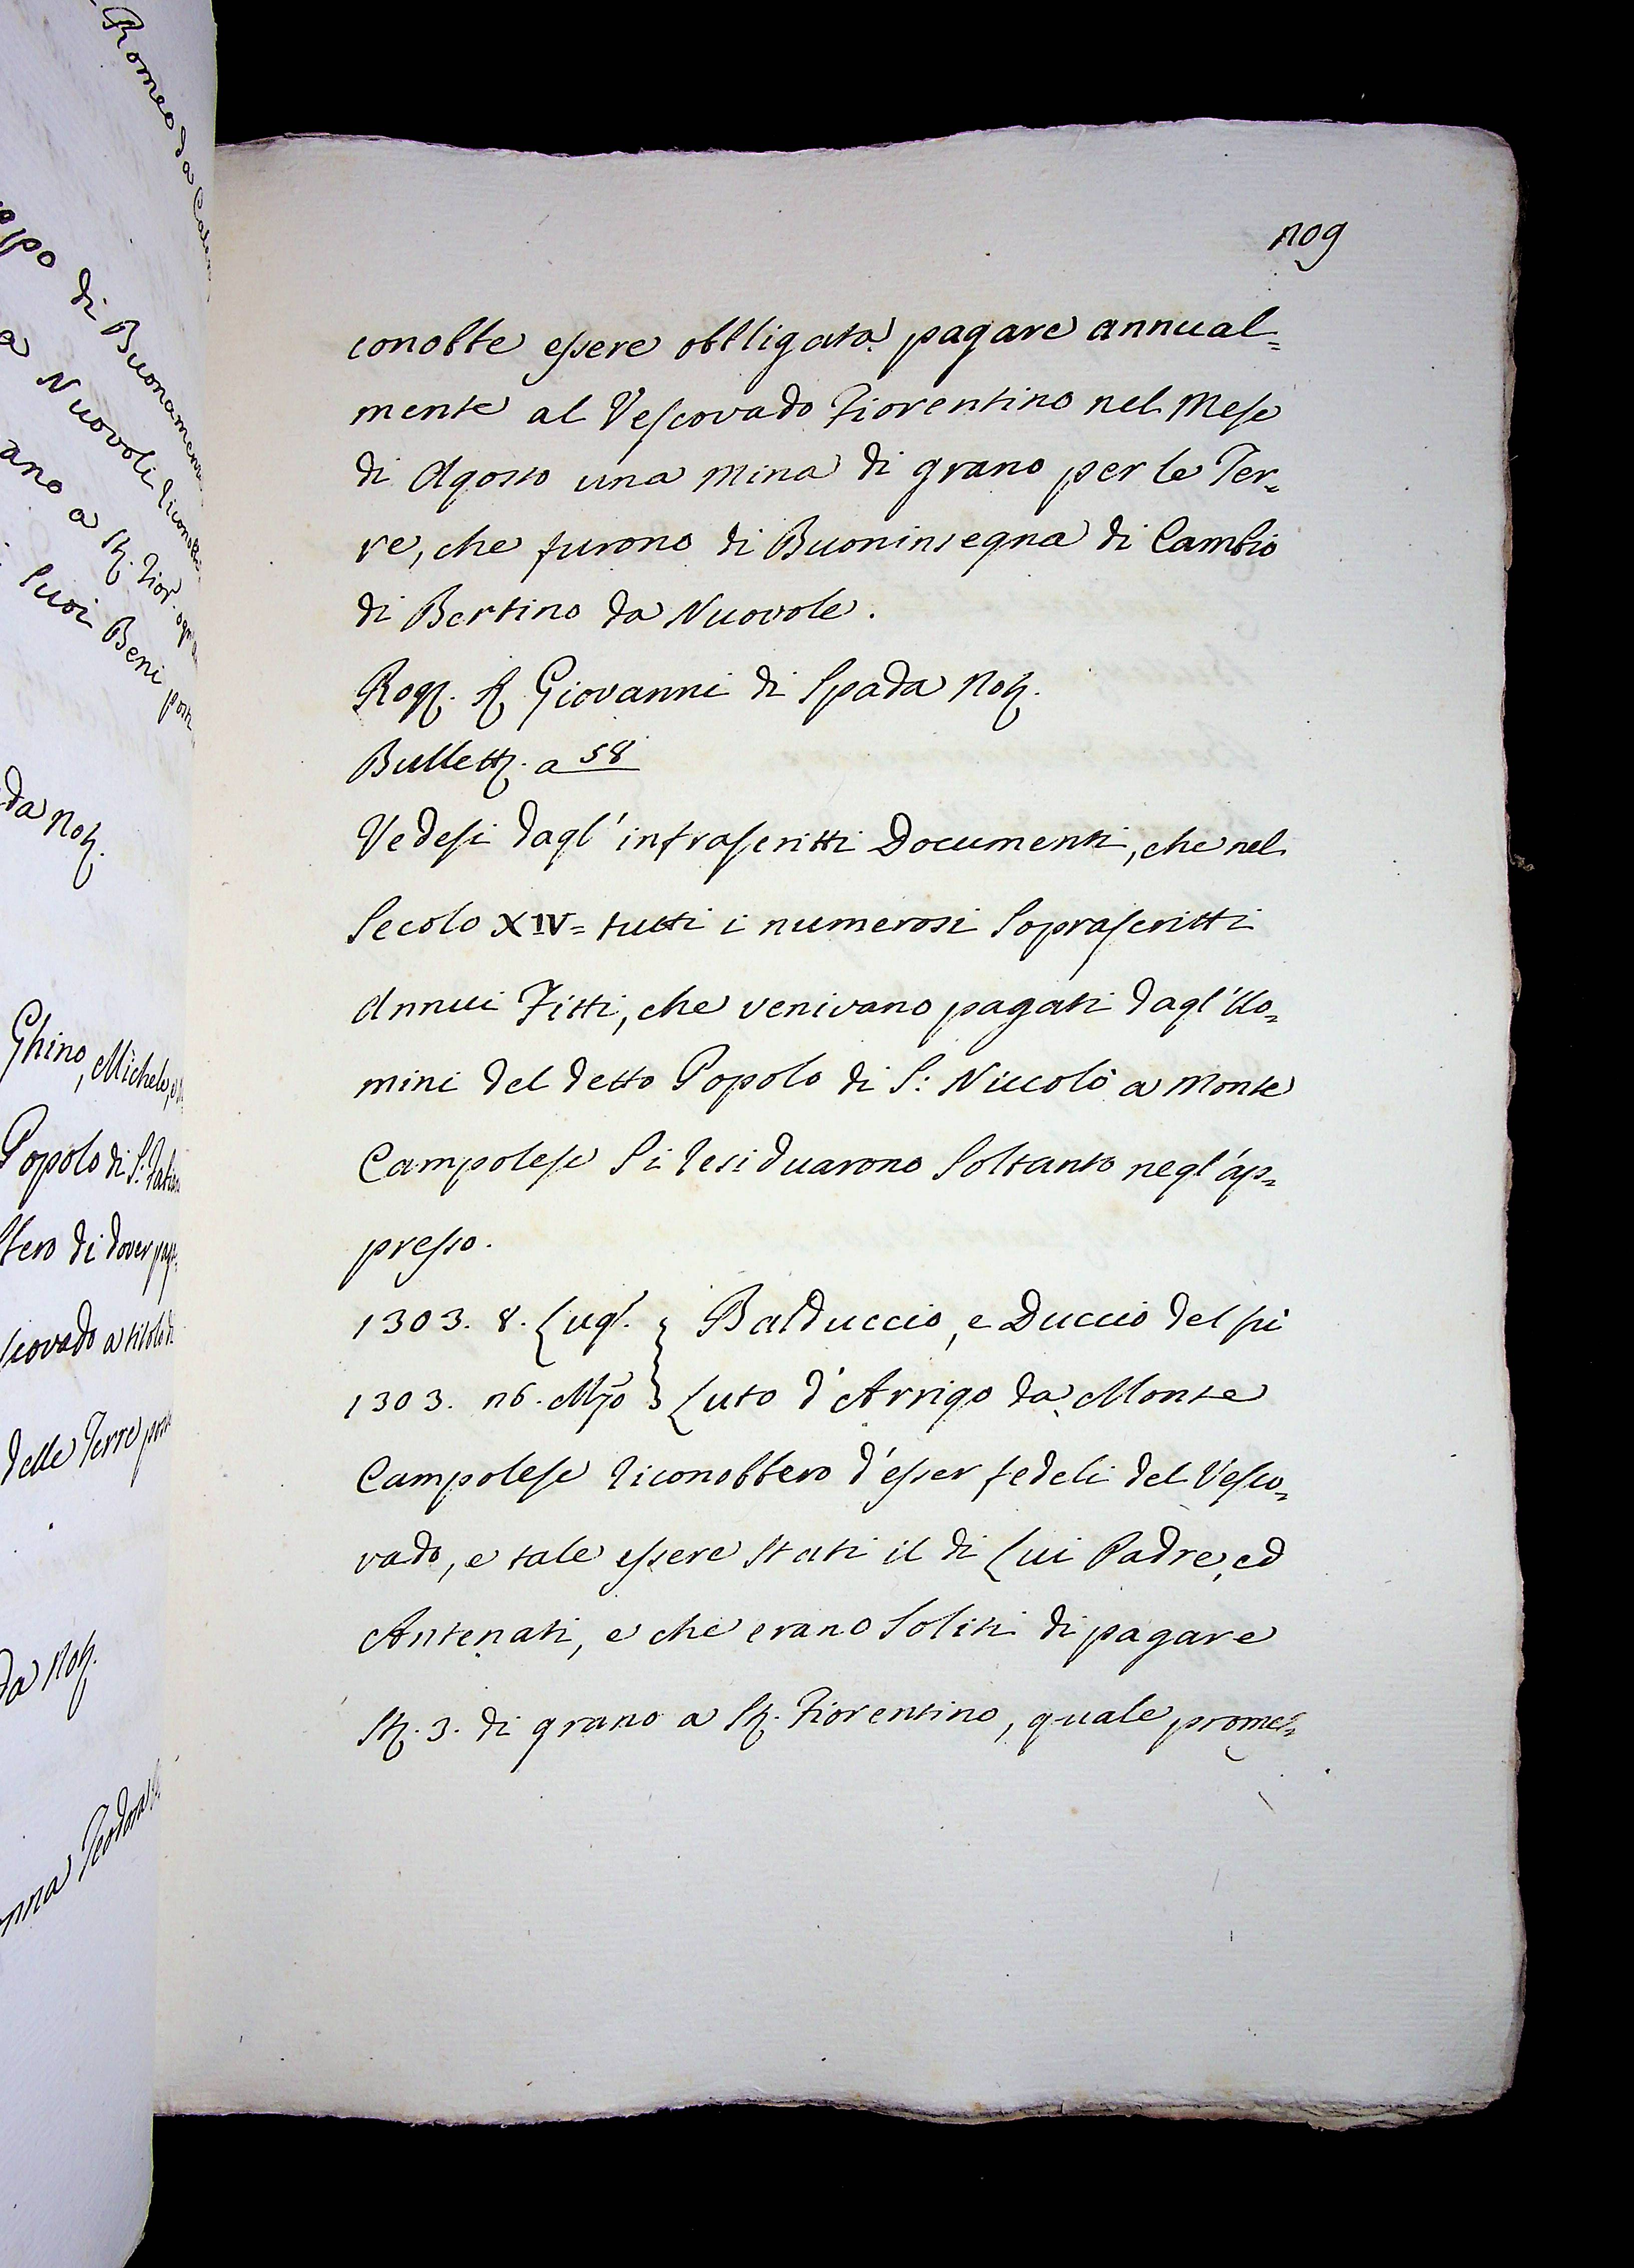 Romeo da
po di Buonamen
a Nuovoli ricono
ano a St. Fior. ogn
Suoi Beni pos
da Not.
Ghino, Michele, e
Popolo di S:
stero di dover pag
scovado a titolo di
delle Terre pos
da Not.
nna Teodora
209
conobbe essere obbligata pagare annual=
mente al Vescovado Fiorentino nel Mese
di Agosto una mina di grano per le Ter=
re, che furono di Buoninsegna di Cambio
di Bertino da Nuovole.
Rog. S. Giovanni di Spada Not.
Bullett. a 58
Vedesi dagl' infrascritti Documenti, che nel
Secolo XIV= tutti i numerosi Soprascritti
Annui Fitti, che venivano pagati dagl' Uo=
mini del detto Popolo di S: Niccolò a Monte
Campolese Si residuarono Soltanto negl' ap=
presso.
1303. 8. Lugl. } Balduccio, e Duccio del fù
1303. 26. Mzo } Luto d' Arrigo da Monte
Campolese riconobbero d' esser fedeli del Vesco=
vado, e tale essere stati il di Lui Padre, ed
Antenati, e che erano Soliti di pagare
St. 3. di grano a St. Fiorentino, quale promes=